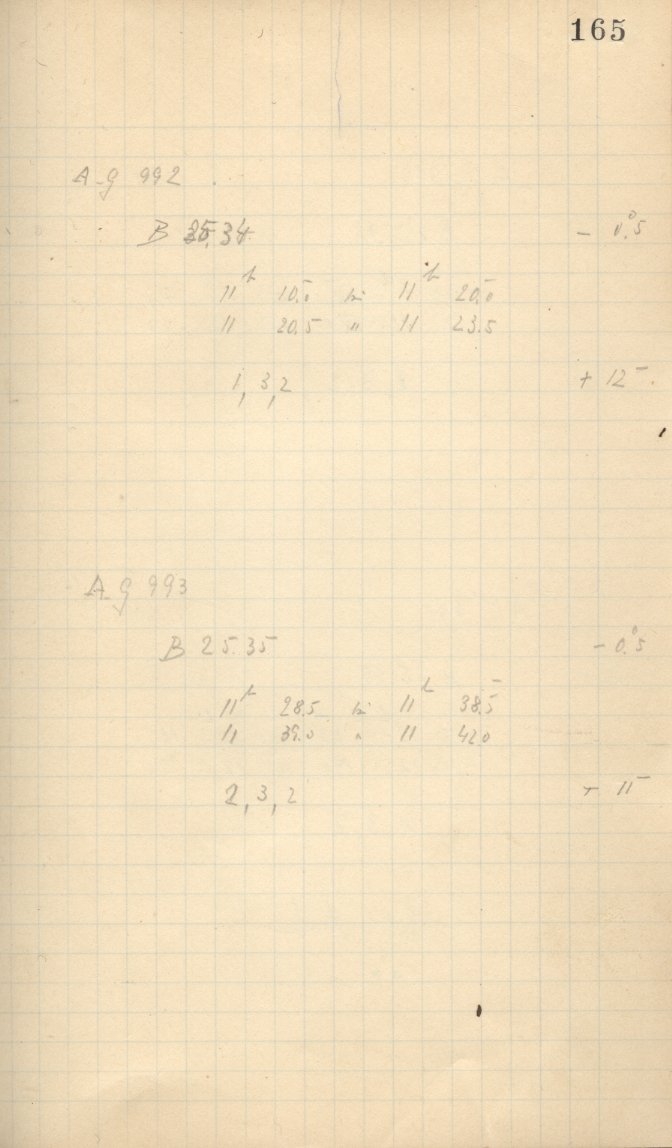 165
A.g 992
B 25.34 - 0°.5
11h 10.0 bis 11h 20.0
11 20.5 " 11 23.5
1, 3, 2 + 12
A.g 993
B 25.35 - 0°.5
11h 28.5 bis 11h 38.5
11 39.0 " 11 42.0
2, 3, 2 + 11